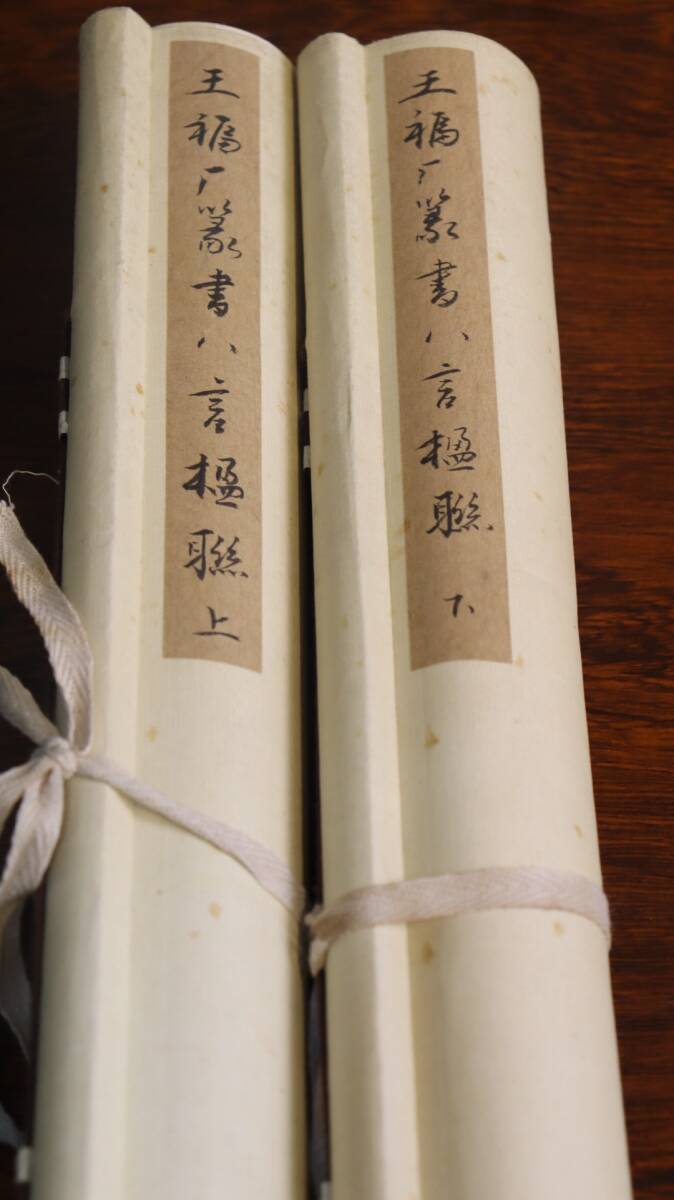 王福厂篆書八言楹聯 上
王福厂篆書八言楹聯 下